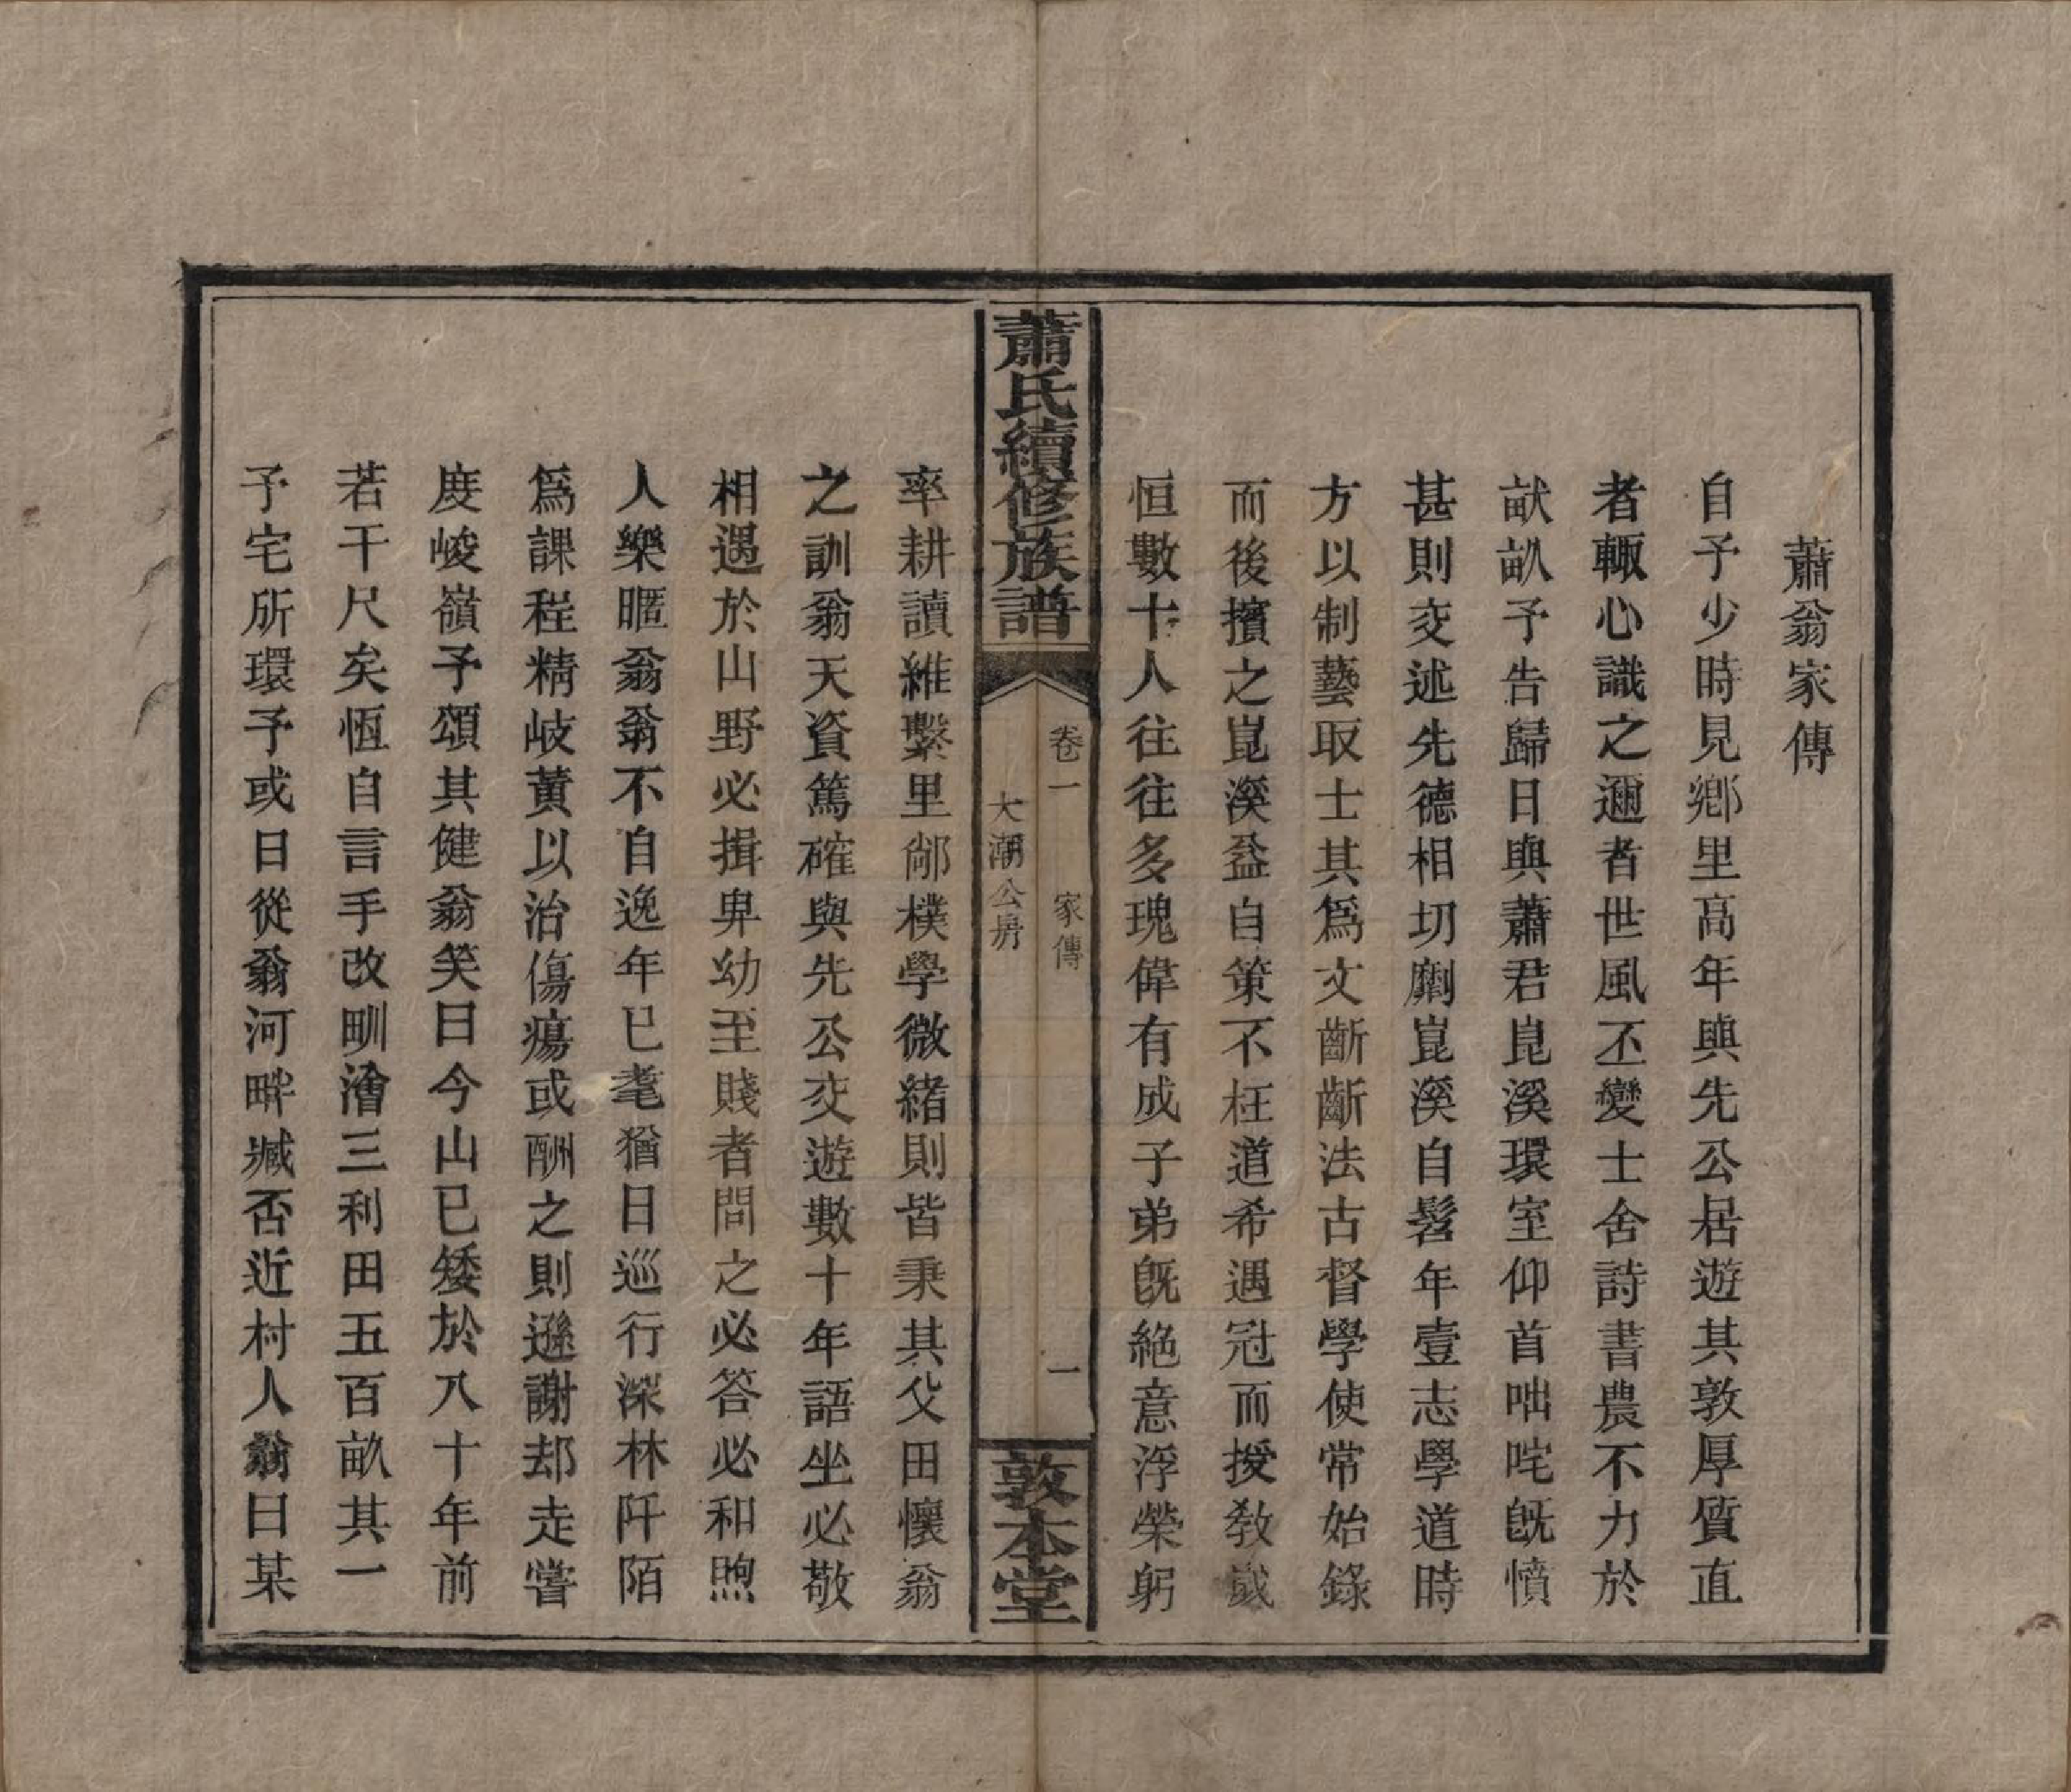 蕭翁家傳
自予少時見鄉里高年與先公居遊其敦厚質直
者輙心識之邇者世風丕變士舍詩書農不力於
畎畝予告歸日與蕭君崑溪環室仰首咄咤旣憤
甚則交述先德相切劘崑溪自髫年壹志學道時
方以制藝取士其爲文齗齗法古督學使常始錄
而後擯之崑溪益自策不枉道希遇冠而授敎歲
恒數十人往往多瑰偉有成子弟旣絶意浮榮躬
蕭氏續修族譜
卷一 家傳 一
大潮公房
敦本堂
率耕讀維繫里鄰樸學微緒則皆秉其父田懷翁
之訓翁天資篤確與先公交遊數十年語坐必敬
相遇於山野必揖卑幼至賤者問之必答必和煦
人樂暱翁翁不自逸年已耄猶日巡行深林阡陌
爲課程精岐黃以治傷瘍或酬之則遜謝却走嘗
度峻嶺予頌其健翁笑曰今山已矮於八十年前
若干尺矣恆自言手改甽澮三利田五百畝其一
予宅所環予或日從翁河畔臧否近村人翁曰某